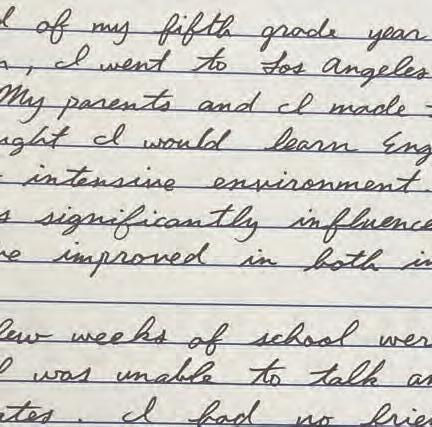 d of my fifth grade year
, I went to Los Angeles
My parents and I made
ught I would learn Eng
intensive environment.
s significantly influence
ve improved in both in
few weeks of school wer
I was unable to talk an
ates. I had no frie